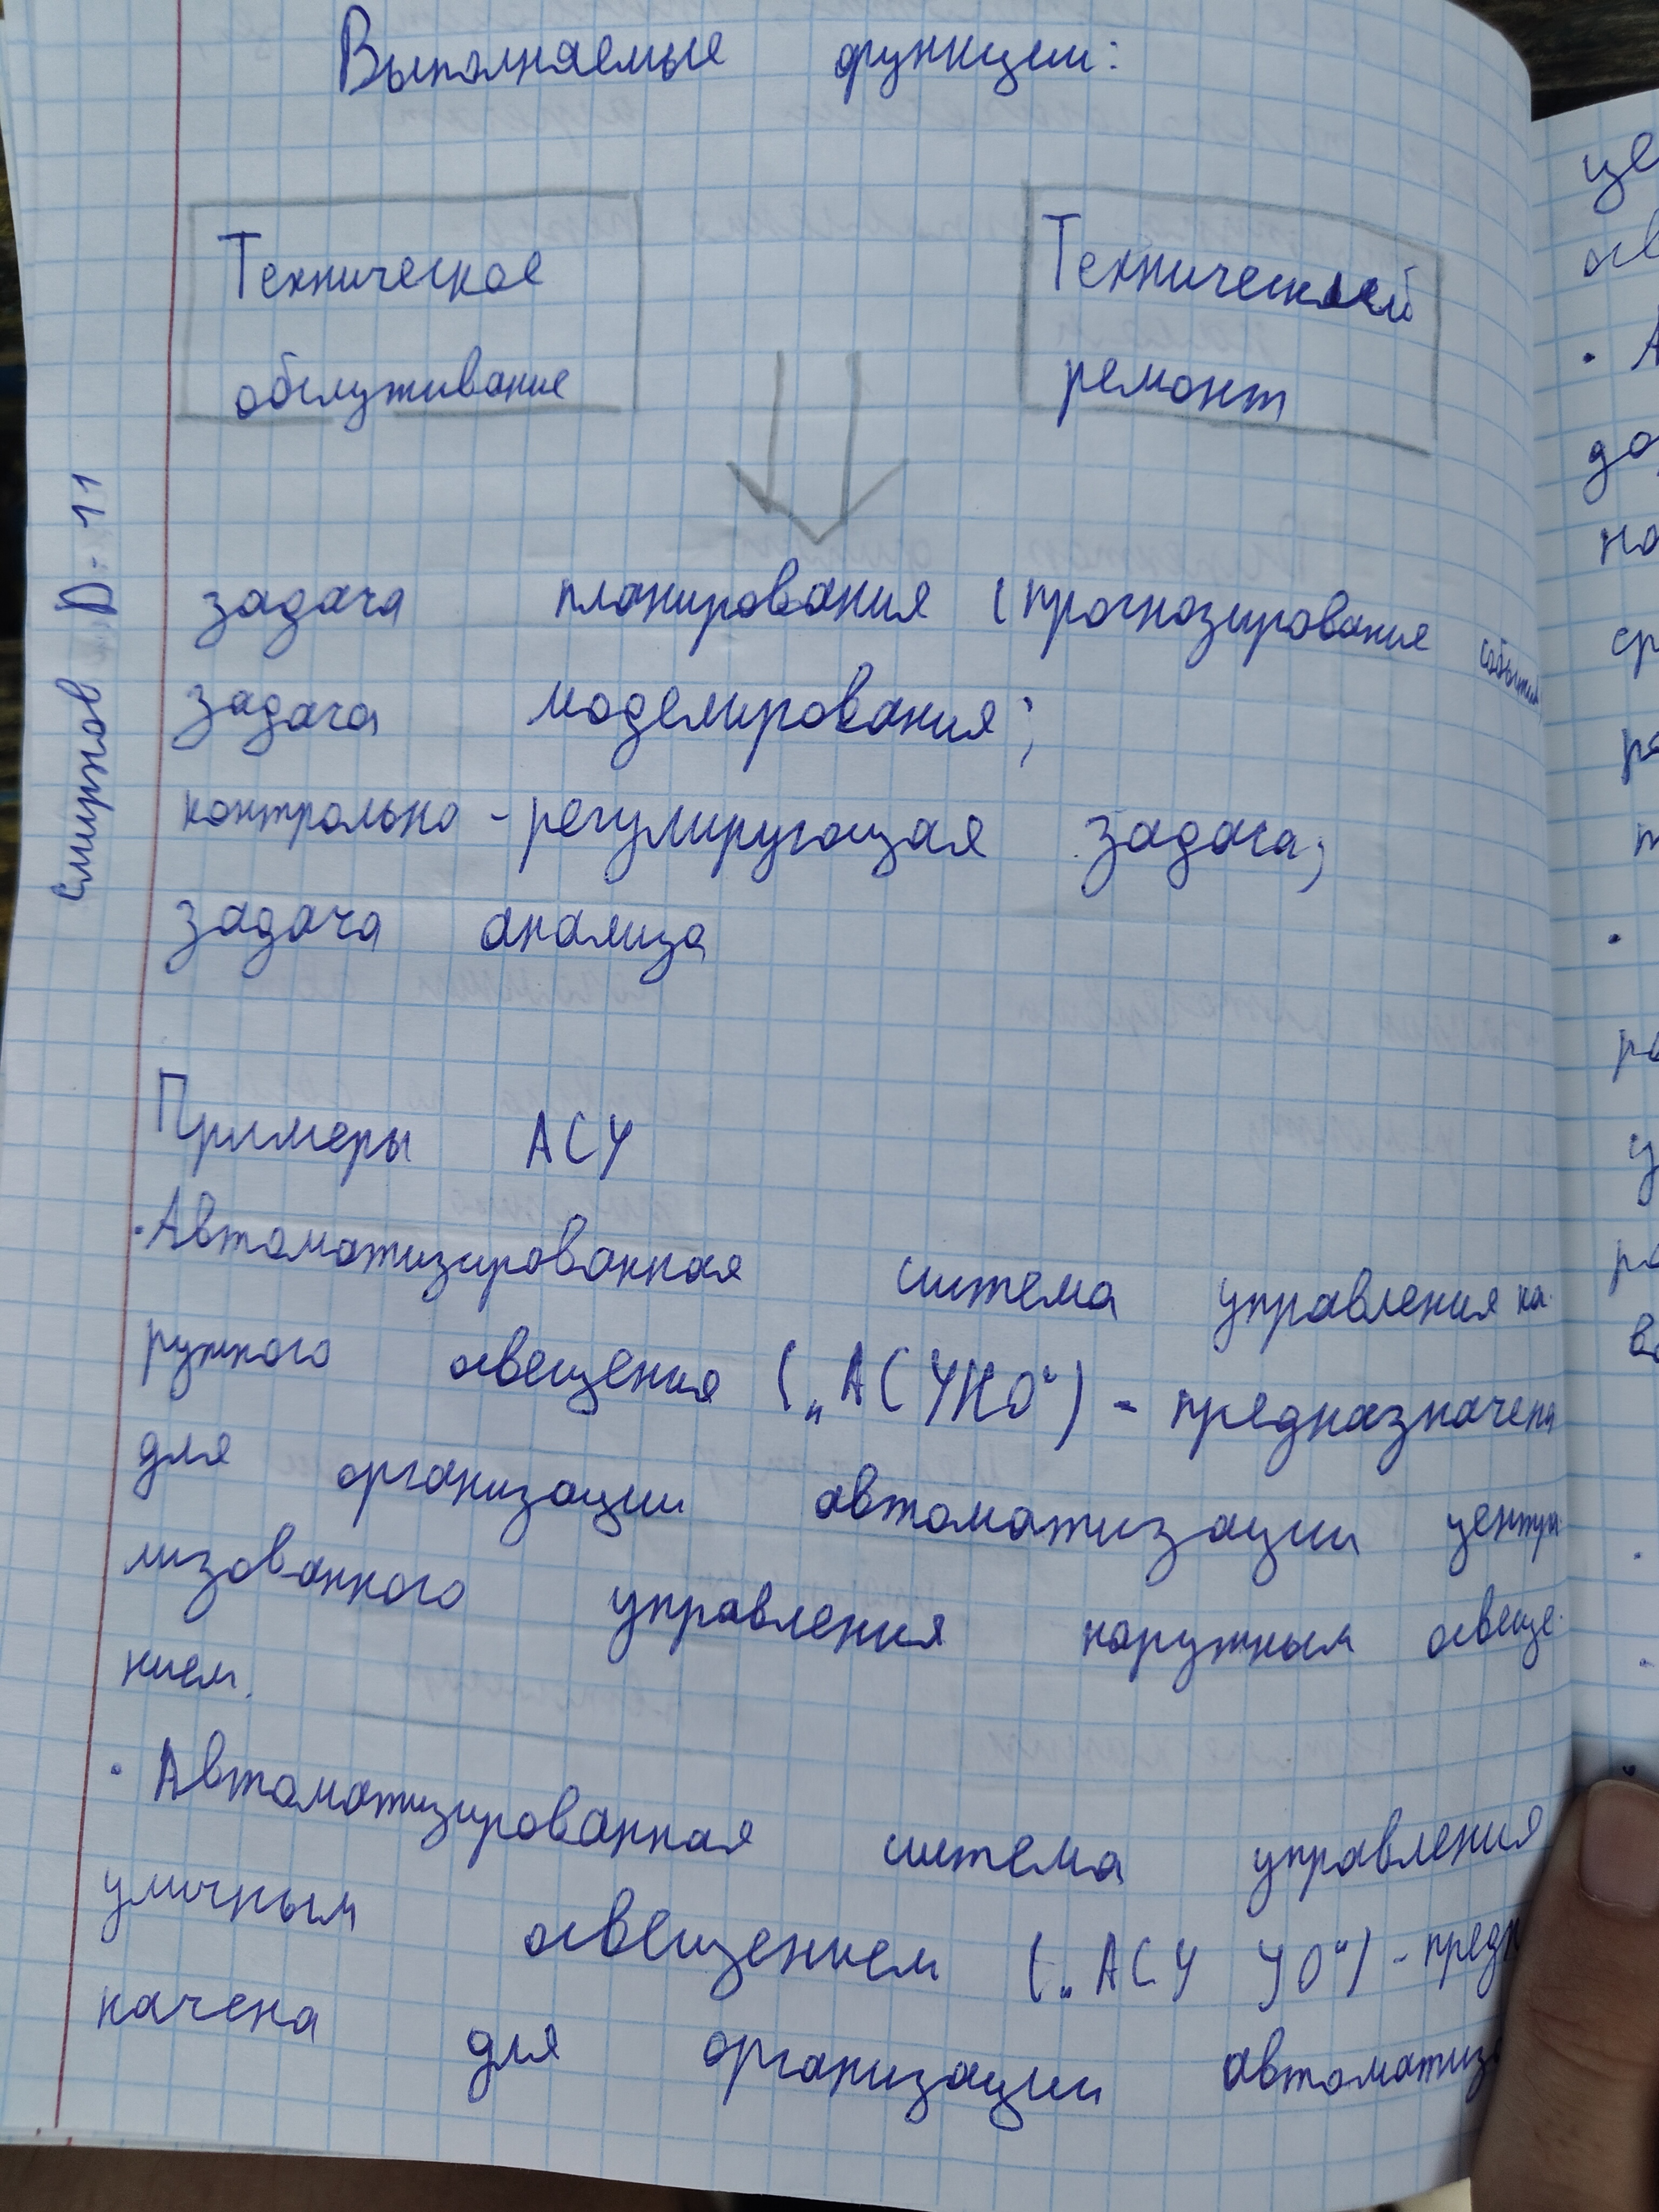 Выполняемые функции:
Техническое
обслуживание
Технический
ремонт
задача планирования (прогнозирование события
задача моделирования;
контрольно-регулирующая задача;
задача анализа
Смирнов D-11
Примеры АСУ
·Автоматизированная система управления на-
ружного освещения („АСУНО“) - предназначена
для организации автоматизации центра
лизованного управления наружным освеще-
нием.
· Автоматизированная система управления
уличным освещением („АСУ УО“) - предн
начена для организации автоматиза